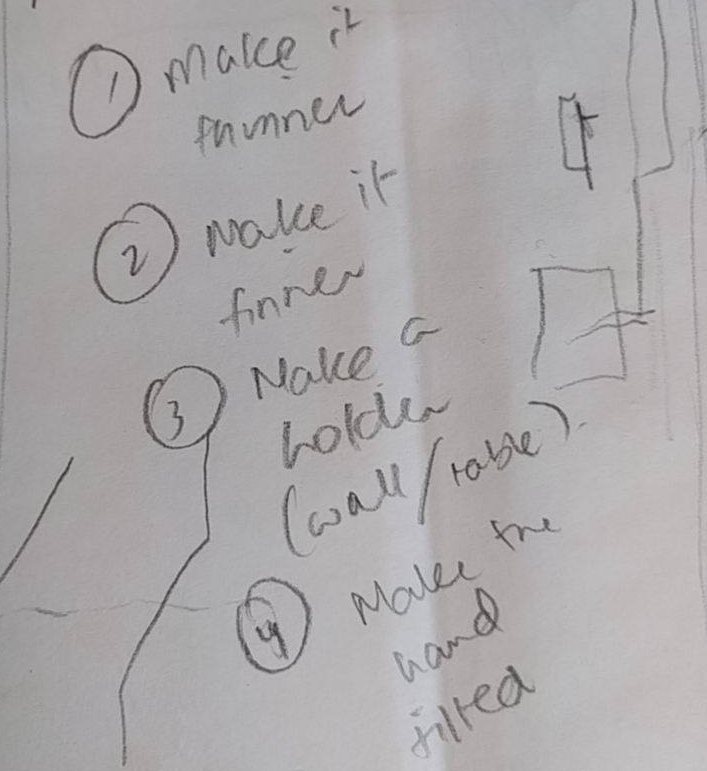 1 Make it
thinner
2 Make it
finner
3 Make a
holder
(wall/table).
4 Make the
hand
tilted